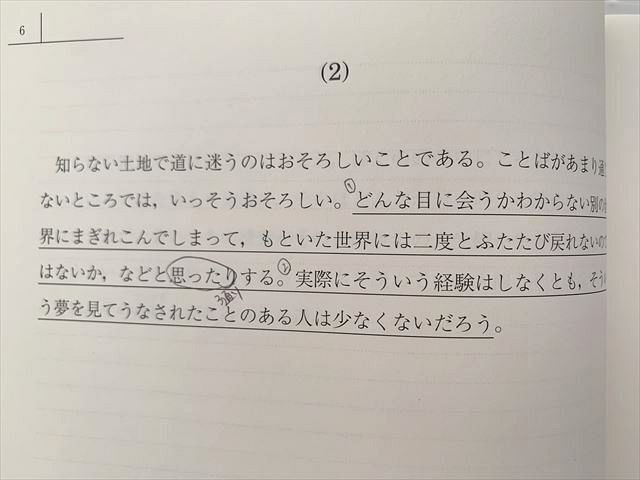 6
(2)
知らない土地で道に迷うのはおそろしいことである。ことばがあまり通
ないところでは，いっそうおそろしい。①どんな目に会うかわからない別の
界にまぎれこんでしまって，もといた世界には二度とふたたび戻れないの
はないか，などと思ったりする。②実際にそういう経験はしなくとも，そう
う夢を見てうなされたことのある人は少なくないだろう。